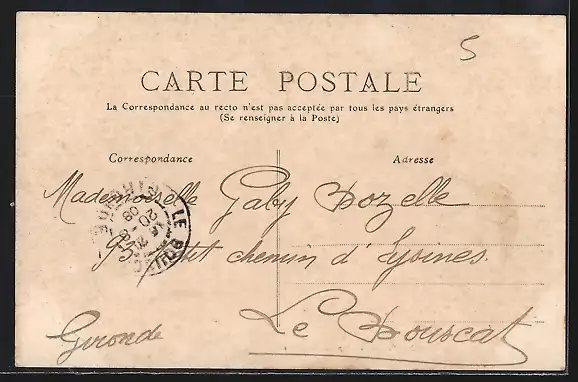 5
CARTE POSTALE
La Correspondance au recto n'est pas acceptée par tous les pays étrangers
(Se renseigner à la Poste)
Correspondance
Adresse
Mademoiselle Gaby Dozelle
93 Petit chemin d'Eysines.
Le Bouscat
Gironde
LE BOU
GIRONDE